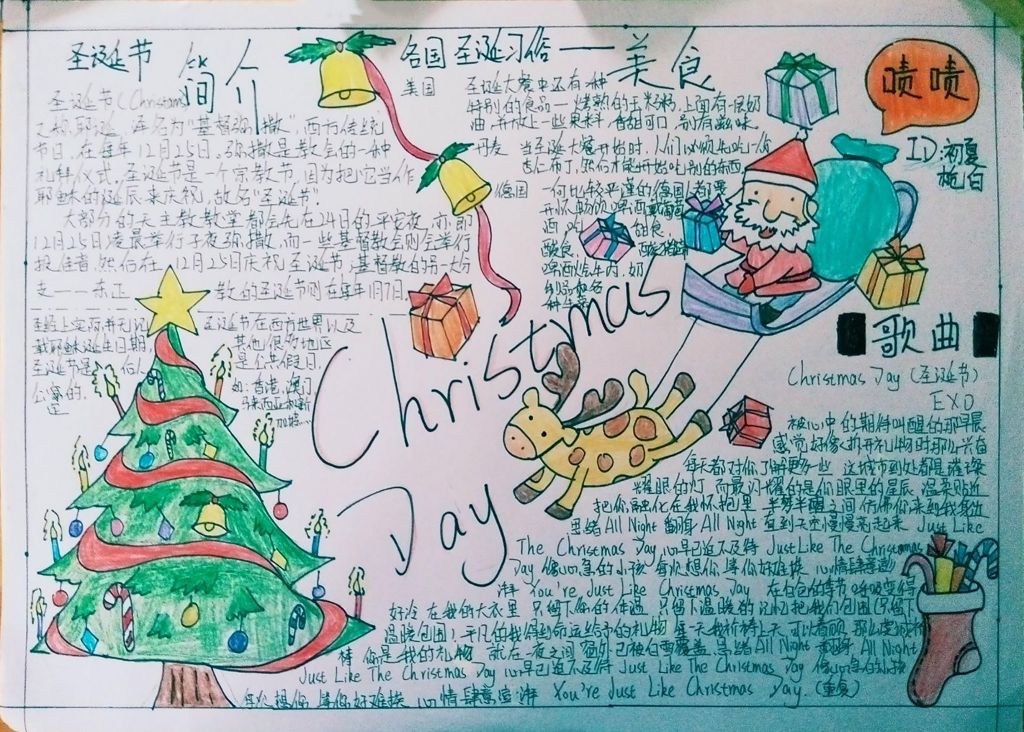 圣诞节
简介
圣诞节(Christmas
又称耶诞,译名为“基督弥撒”,西方传统
节日,在每年12月25日。弥撒是教会的一种
礼拜仪式。圣诞节是一个宗教节,因为把它当作
耶稣的诞辰来庆祝,故名“圣诞节”。
大部分的天主教教堂都会先在24日的平安夜,亦即
12月25日凌晨举行子夜弥撒,而一些基督教会则会举行
报佳音,然后在12月25日庆祝圣诞节;基督教的另一大分
支——东正教的圣诞节则在每年1月7日。
圣经上实际并无记
载耶稣诞生日期,
圣诞节是后人
公定的.
圣诞节在西方世界以及
其他很多地区
是公共假日.
如:香港、澳门、
马来西亚和新
加坡....
各国圣诞习俗——美食
美国 圣诞大餐中还有一种
特别的食品—烤熟的玉米粥,上面有一层奶
油,并放上一些果料,香甜可口,别有滋味.
丹麦 当圣诞大餐开始时,人们必须先吃一份
杏仁布丁,然后才能开始吃别的东西.
德国 一向比较严谨的德国人都要
开怀畅饮啤酒或葡萄
酒,吃 甜食,
酸食,
啤酒烩牛肉,奶
制品和各
种生菜
啧啧
ID:初夏
桅白
Christmas
Day
歌曲
Christmas Day (圣诞节)
EXO
被心中的期待叫醒的那早晨
感觉好像拆开礼物时那师兴奋
每天都对你了解更多一些 这城市到处都是璀璨
耀眼的灯 而最闪耀的是你眼里的星辰 温柔贴近
把你融化在我怀抱里 半梦半醒之间仿佛你来到我身边
思绪All Night 翻腾All Night 直到天空慢慢亮起来 Just Like
The Christmas Day 心早已迫不及待 Just Like The Christmas
Day 像心急的小孩 每次想你 等你好难挨 心情肆意澎
湃 You're Just Like Christmas Day 在白色的季节 呼吸变得
好冷 在我的大衣里 只留下你的体温 只留下温暖的记忆把我们包围(只留下
温暖包围) 平凡的我得到命运给予的礼物 每一天我祈祷上天 可以看顾 那么虔诚祈
祷 你是我的礼物 就在一夜之间 窗外已被白雪覆盖 思绪All Night 翻腾All Night
Just Like The Christmas Day 心早已迫不及待 Just Like The Christmas Day 像心急的小孩
每次想你 等你好难挨 心情肆意澎湃 You're Just Like Christmas Day.(重复)